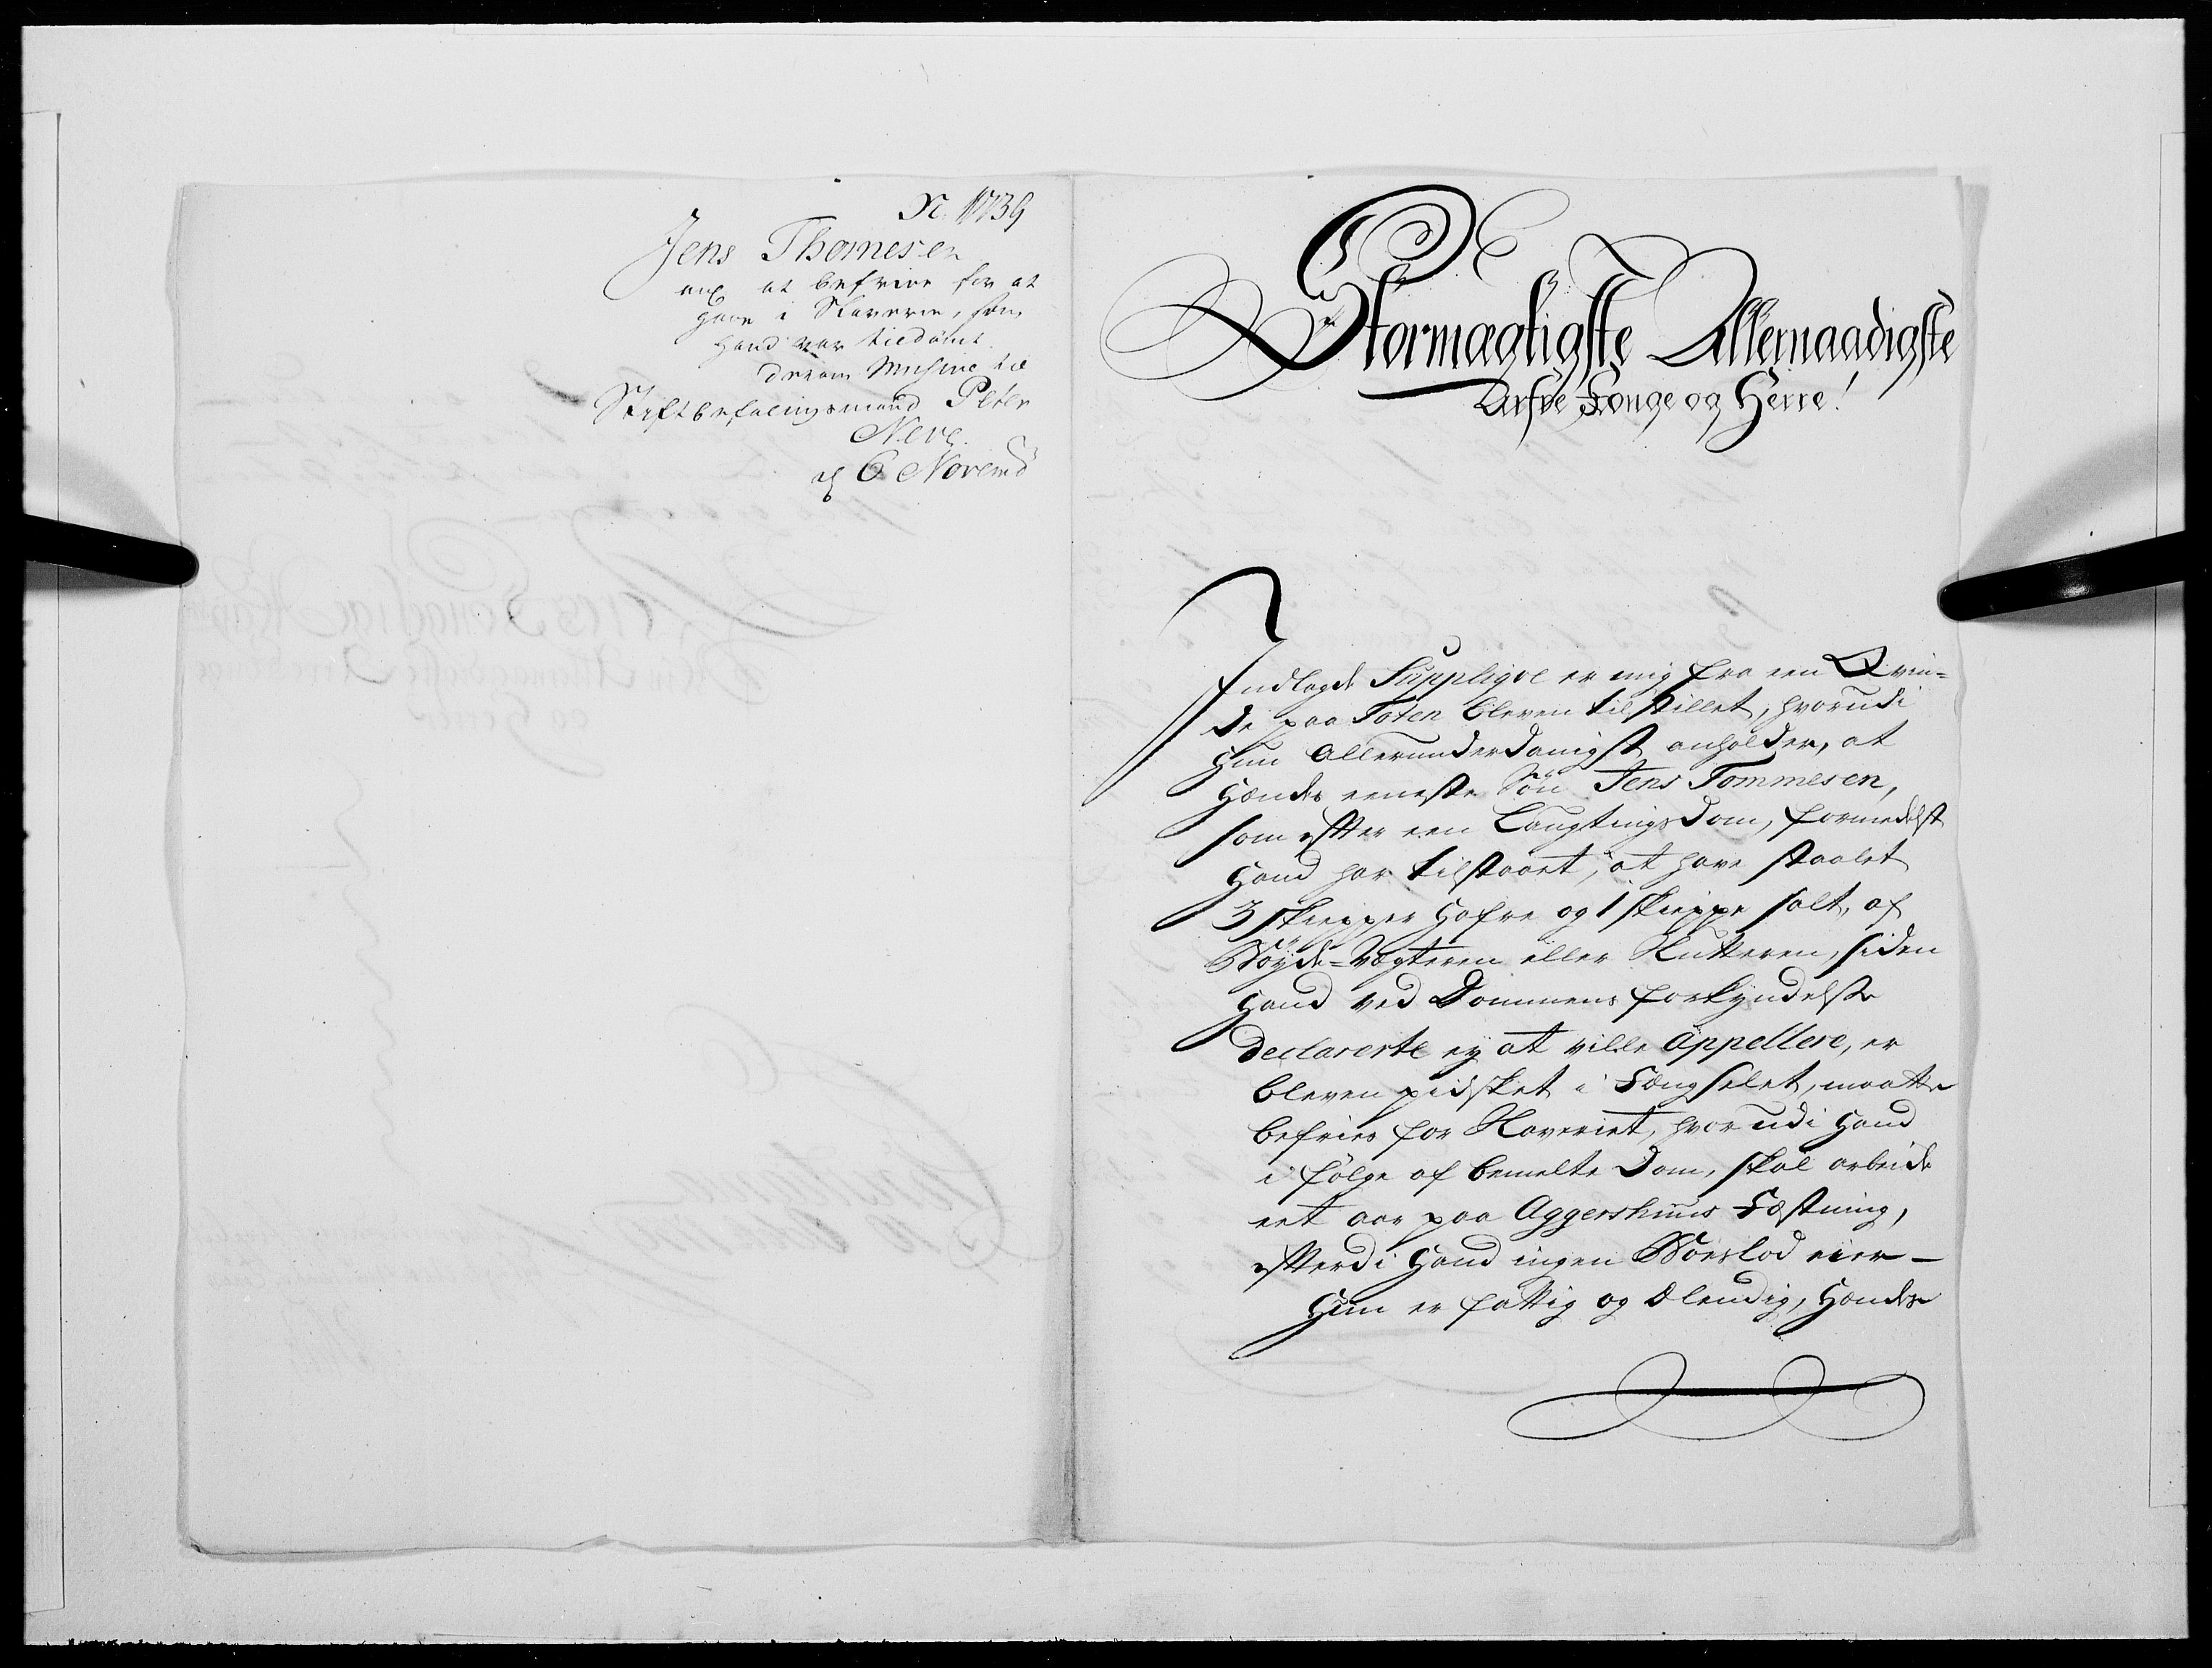 N. 1739
Jens Thomesen
ang at befries for at
gaae i Slaverie, som
hand var tildømt.
derom Missive til
Stiftbefalingsmand Peter
Neve.
d 6 Novemb
Stormægtigste Allernaadigste
Arfve Konge og Herre!
Indlagde Suppliqve er mig fra een Qvin-
de paa Toten bleven tilstillet, hvorudi
hun allerunderdanigst anholder, at
hendes eeneste Søn Jens Tommesen,
som efter een Laugtings Dom, formedelst
hand har tilstaaet, at have staalet
3 skiepper hafre og 1 skieppe salt, af
Røyde-Vogteren eller Rutteren, siden
hand ved Dommens forkyndelse
declarerte ey at ville Appellere, er
bleven pidsket i Fængselet, maatte
befries for Slaveriet, hvorudi hand
i følge af bemelte Dom, skal arbeide
eet aar paa Aggershuus Fæstning,
efterdi hand ingen Boeslod eier -
hun er fattig og Elendig, hendes